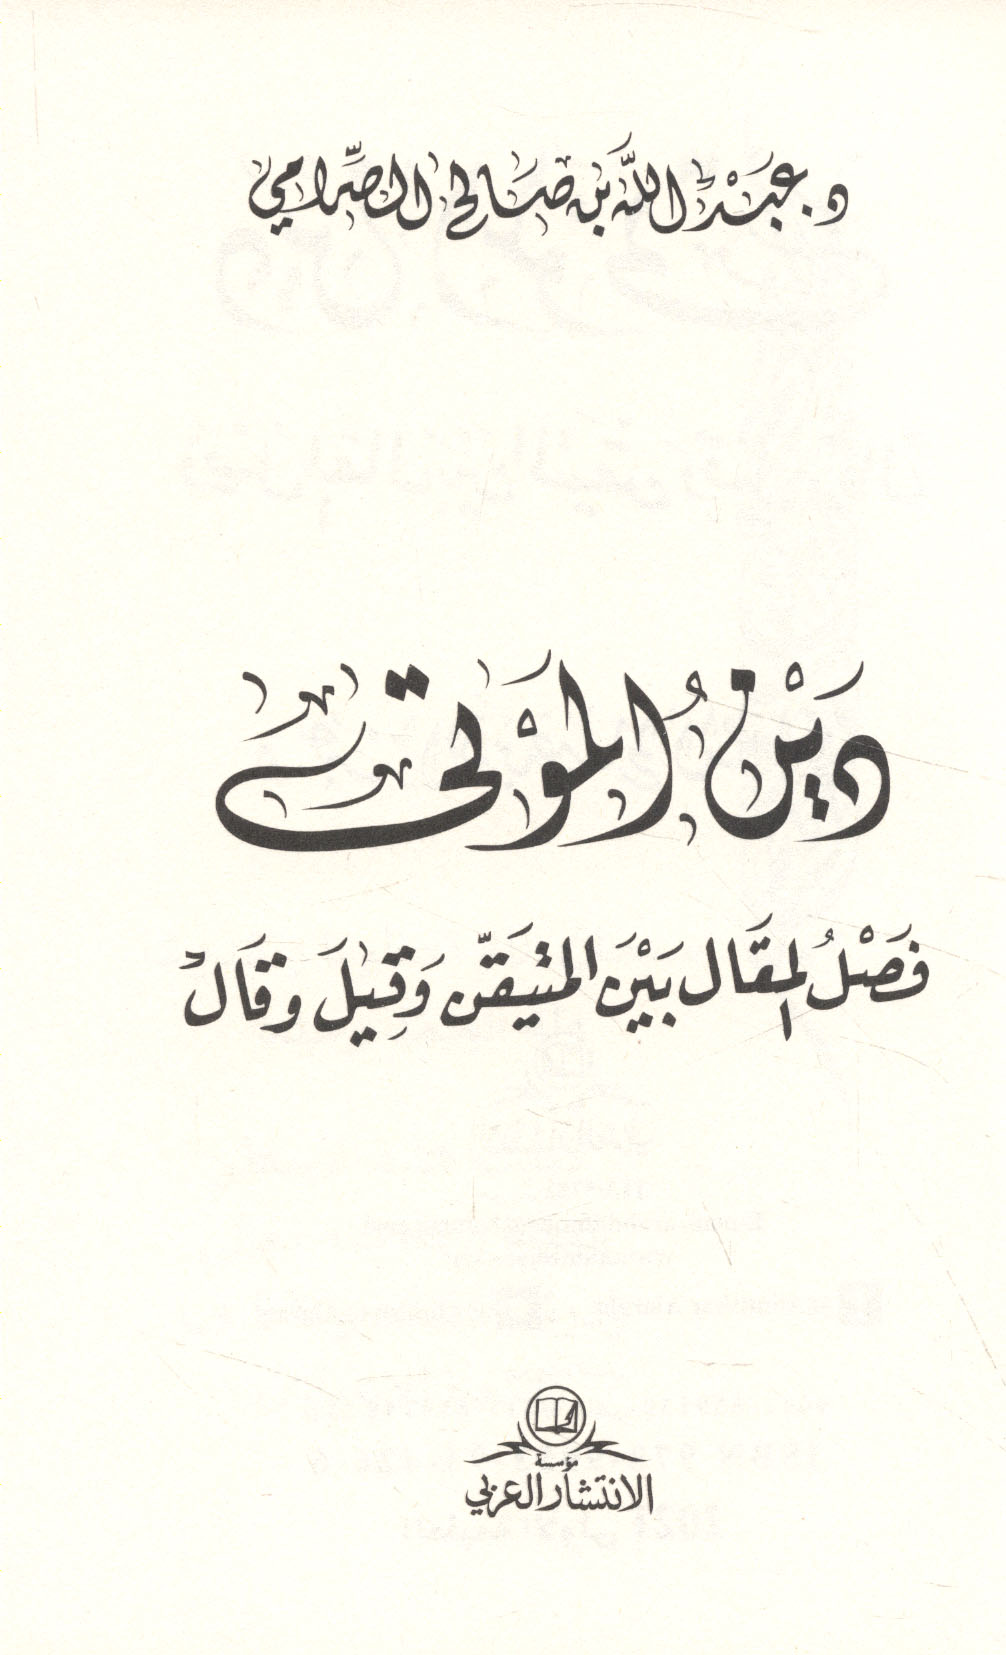 د. عبد الله بن صالح الصرامي
دين الموتى
فصل المقال بين المتيقن وقيل وقال
مؤسسة
الانتشار العربي